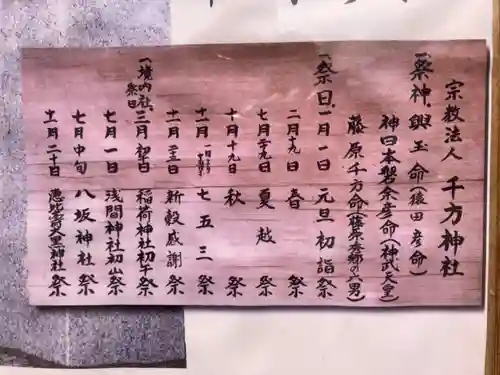 宗教法人 千方神社
一、祭神、興玉命(猿田彦命)
神日本磐余彦命(神武天皇)
藤原千方命(藤原秀郷の六男)
一、祭日、一月一日 元旦初詣祭
二月十九日 春祭
七月二十九日 夏越祭
十月十九日 秋祭
十一月 七五三祭
十一月二十三日 新穀感謝祭
一、境内社祭日 三月初午日 稲荷神社初午祭
七月一日 浅間神社初山祭
七月中旬 八坂神社祭
十一月二十日 恵比寿大黒神社祭